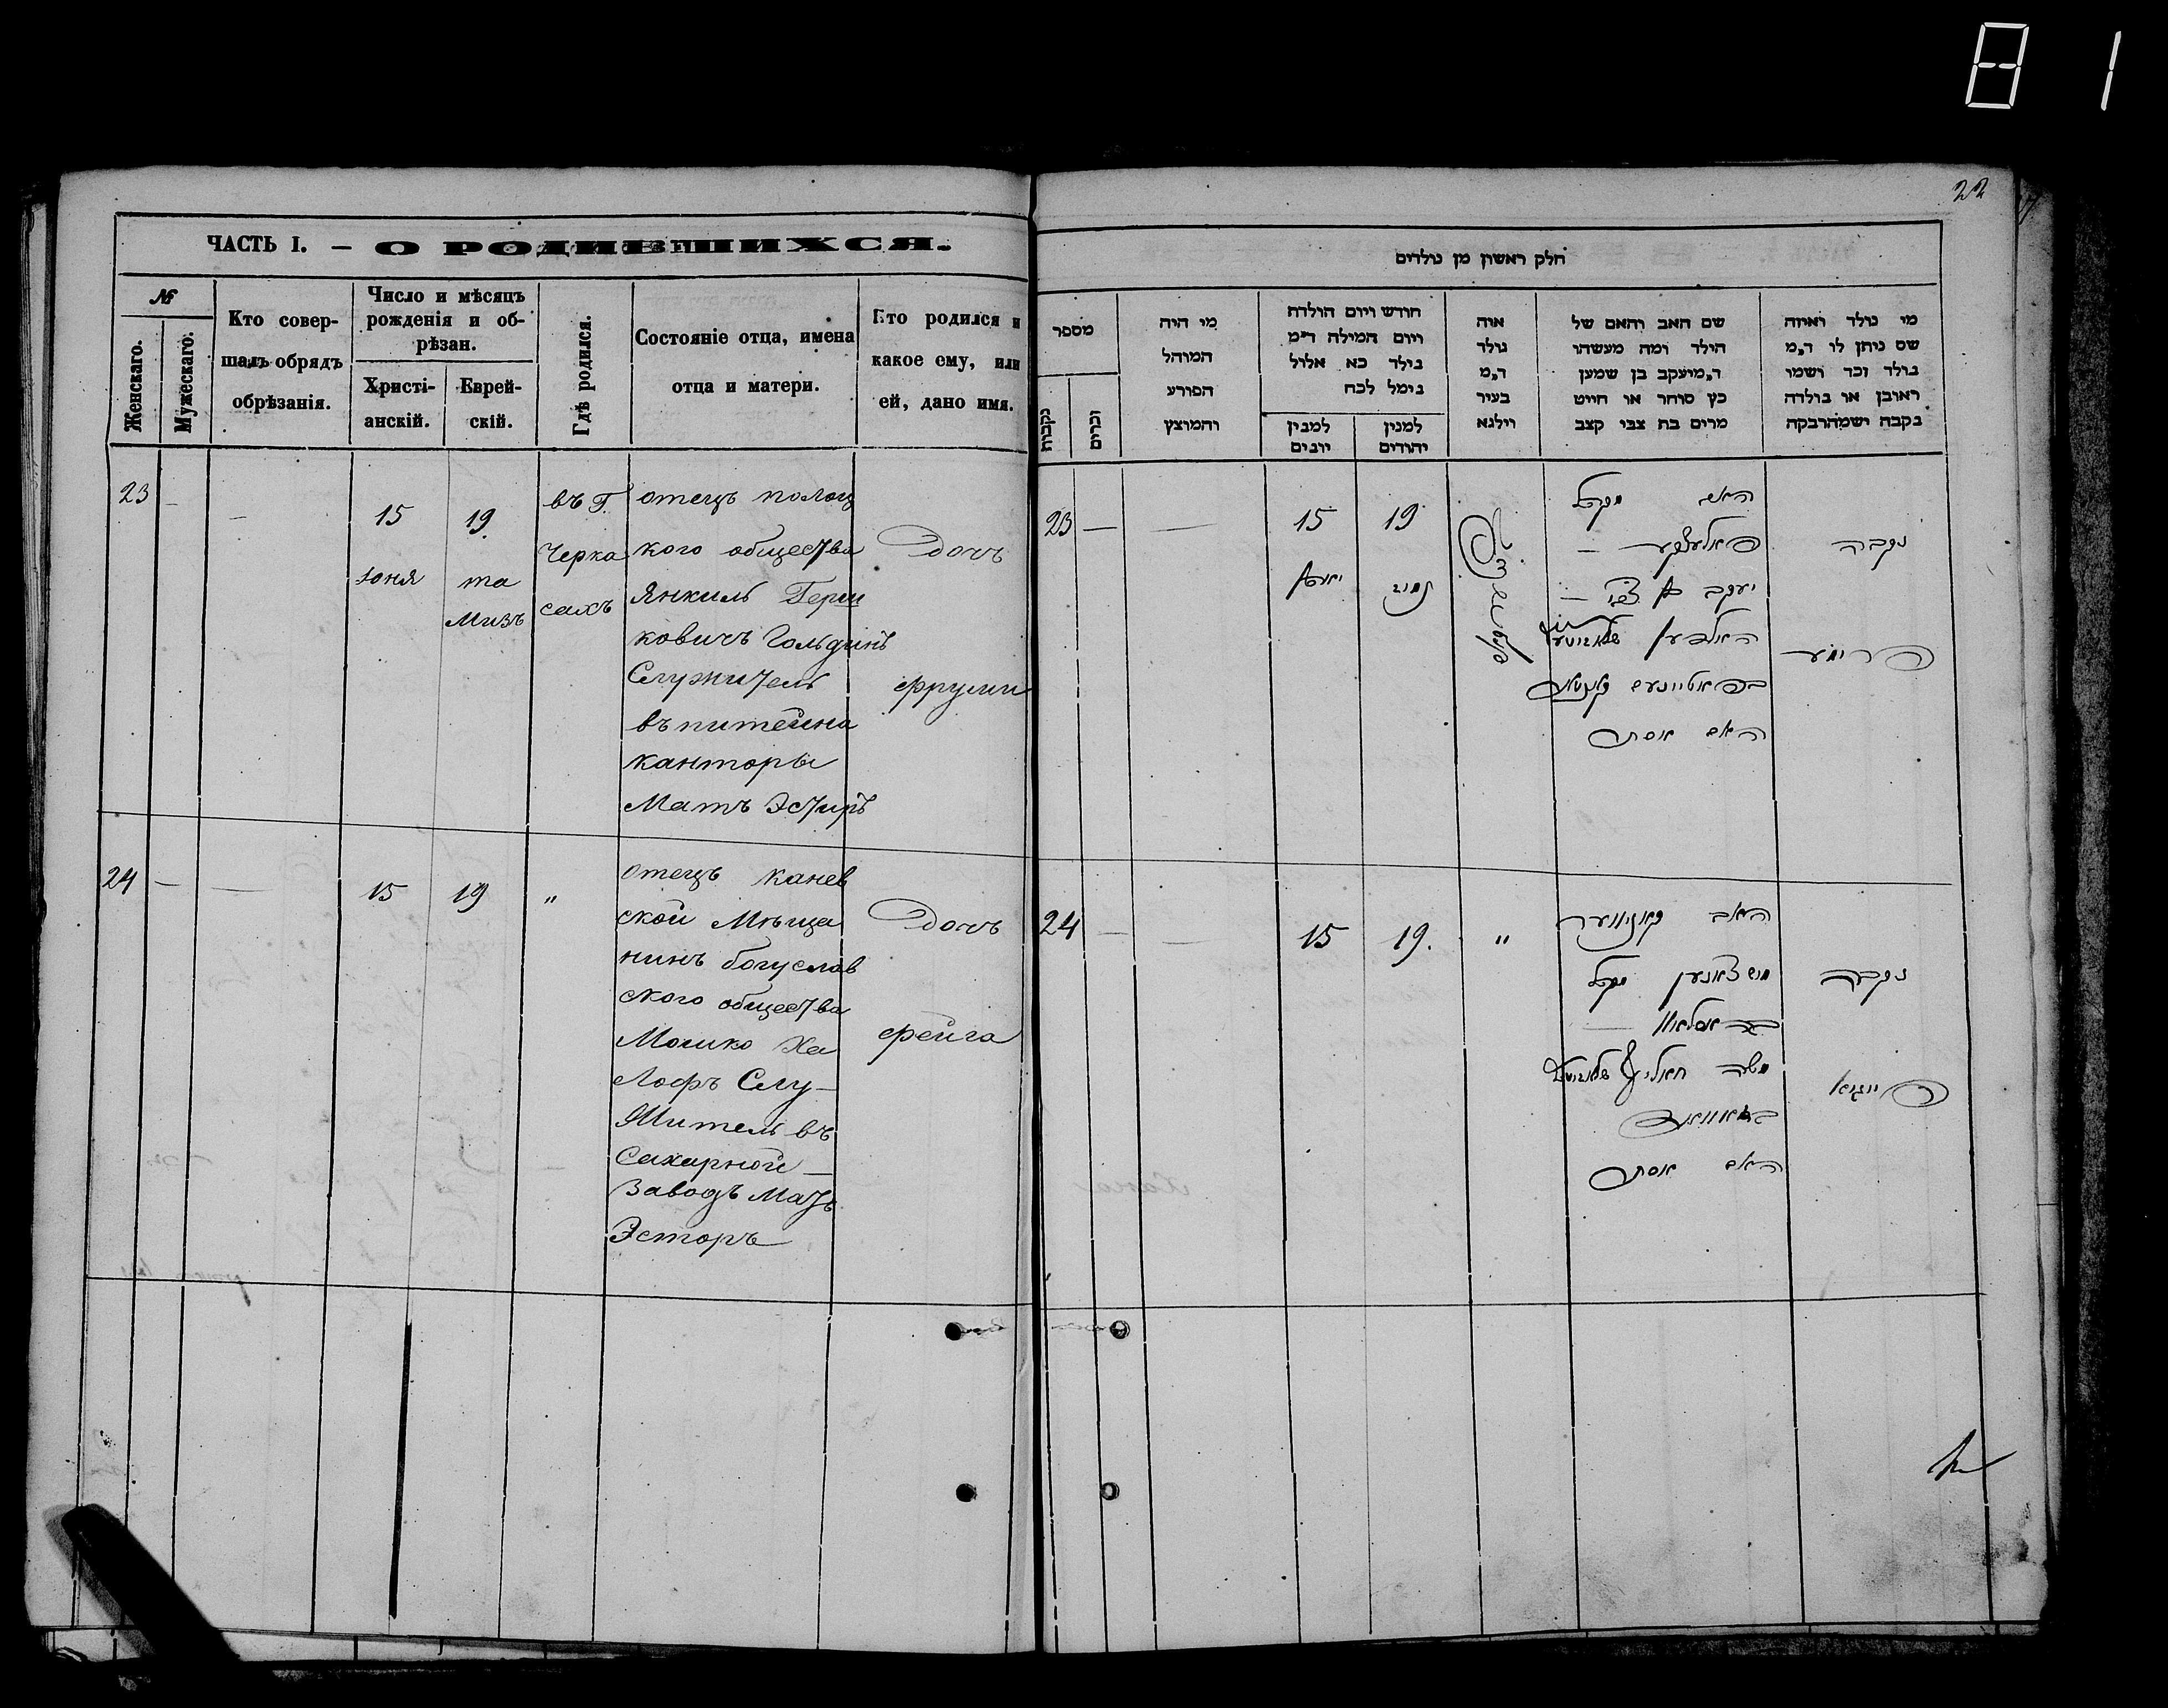 22
ЧАСТЬ I. — О РОДИВШИХСЯ.
№
Женскаго.
Мужескаго.
Кто совер-
шалъ обрядъ
обрѣзанія.
Число и мѣсяцъ
рожденія и об-
рѣзан.
Христі-
анскій.
Еврей-
скій.
Гдѣ родился.
Состояніе отца, имена
отца и матери.
Кто родился и
какое ему, или
ей, дано имя.
23
—
—
15
юня
19
та
музъ
въ Г.
Черка
сахъ
отецъ полоц
кого общества
Янкиль Герш
ковичъ Гольдинъ
Служитель
въ питейна
канторы
Мать Эстиръ
Дочь
фруми
24
—
—
15
19
"
отецъ канев
ской Мѣща
нинъ богуслав
ского общества
Мошко Ха
лофъ Слу-
житель въ
Сахарной —
Заводъ Мать
Эстеръ
Дочь
фейга
חלק ראשון מן נולדים
מספר
נקבות
זכרים
מי היה
המוהל
הפורע
והמוצץ
חודש ויום הולדה
ויום המילה ד״מ
נולד כא אלול
נימל לכח
למנין
יונים
למנין
יהודים
אוה
נולד
ד״מ
בעיר
וילנא
שם האב והאם של
הילד ומה מעשהו
ד״מ יעקב בן שמען
כץ סוחר או חייט
מרים בת צבי קצב
מי נולד ואיזה
שם ניתן לו ד״מ
נולד זכר ושמו
ראובן או נולדה
נקבה ושמה רבקה
23
—
—
15
19
תמוז
האב מקהל
פאלאצק —
יעקב
האם אסתר
נקבה
פרומע
24
—
—
15
19.
"
האב קאניווער
מעשצאנין מקהל
באסלאוו —
משה
האם אסתר
נקבה
פייגא